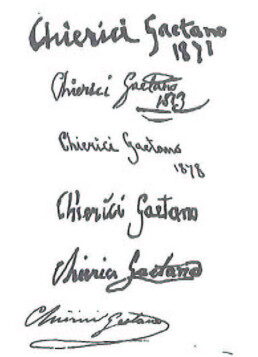 Chierici Gaetano
1871
Chierici Gaetano
1873
Chierici Gaetano
1878
Chierici Gaetano
Chierici Gaetano
Chierici Gaetano